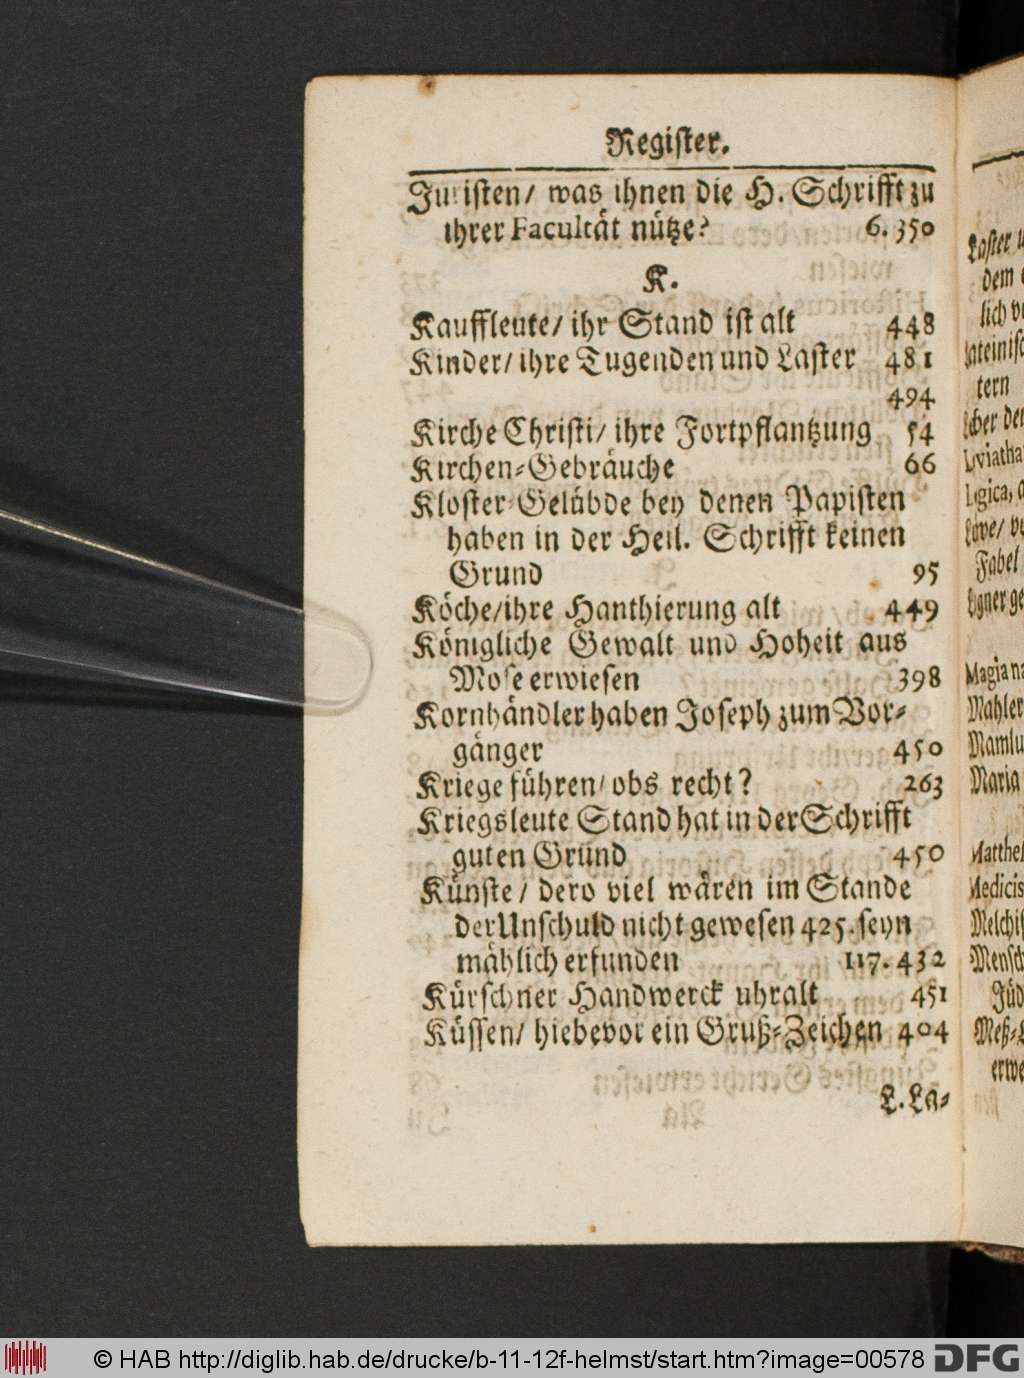 Register.
Juristen/ was ihnen die H. Schrifft zu
ihrer Facultät nütze? 6. 350
K.
Kauffleute/ ihr Stand ist alt 448
Kinder/ ihre Tugenden und Laster 481
494
Kirche Christi/ ihre Fortpflantzung 54
Kirchen-Gebräuche 66
Kloster-Gelübde bey denen Papisten
haben in der Heil. Schrifft keinen
Grund 95
Köche/ihre Hanthierung alt 449
Königliche Gewalt und Hoheit aus
Mose erwiesen 398
Kornhändler haben Joseph zum Vor-
gänger 450
Kriege führen/ obs recht? 263
Kriegsleute Stand hat in der Schrifft
guten Grund 450
Künste/ dero viel wären im Stande
der Unschuld nicht gewesen 425. seyn
mählich erfunden 117. 432
Kürschner Handwerck uhralt 451
Küssen/ hiebevor ein Gruß-Zeichen 404
L. La-
Laster
dem
lich
tern
Fabel
Mahler
Maria
© HAB http://diglib.hab.de/drucke/b-11-12f-helmst/start.htm?image=00578 DFG